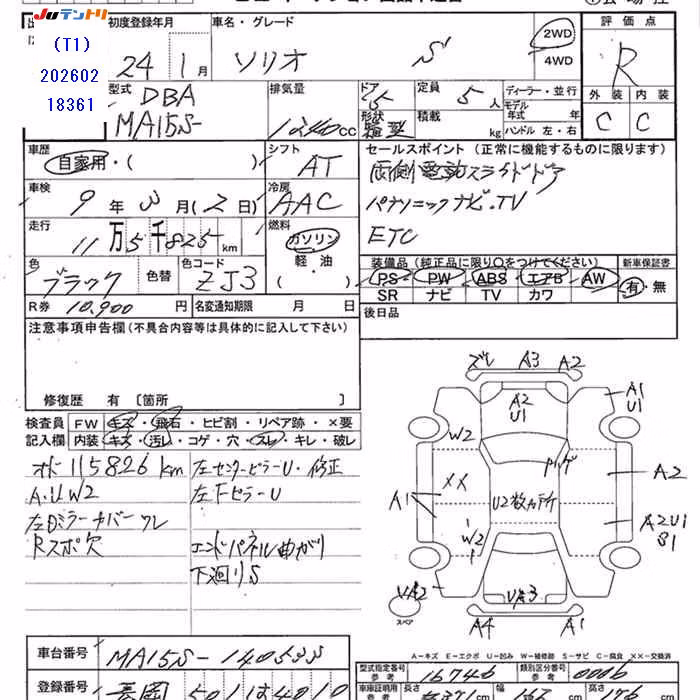 JUテントリ
(T1)
202602
18361
初度登録年月
車名・グレード
評価点
24 1月
ソリオ S
2WD
4WD
R
型式 DBA
MA15S-
排気量
1240cc
ドア
5
形状
定員
5人
積載
kg
ディーラー・並行
モデル年式 年
ハンドル 左・右
外装 内装
C C
車歴
自家用・( )
シフト
AT
セールスポイント(正常に機能するものに限ります)
両側電動スライドドア
パナソニックナビ・TV
ETC
車検
9年3月(2日)
冷房
AAC
走行
11万5千825km
燃料
ガソリン
軽・油
( )
色
ブラック
色替
色コード
ZJ3
装備品(純正品に限り○をつけてください)
新車保証書
PS PW ABS エアB AW
SR ナビ TV カワ
有・無
R券 10,900円
名変通知期限 月 日
後日品
注意事項申告欄(不具合内容等は具体的に記入して下さい)
修復歴 有 〔箇所 〕
検査員記入欄
FW キズ・飛石・ヒビ割・リペア跡・×要
内装 キズ・汚れ・コゲ・穴・スレ・キレ・破レ
オド115826km
左センターピラーU・修正
A.U W2
左FピラーU
左Dミラーカバーワレ
Rスポ欠
エンドパネル曲がり
下廻りS
ズレ A3 A2
A2
U1
A1
U1
W2
XX
A1
U2数カ所
A2
A2U1
S1
W2
UA2
UA3
スペア
A4 A1
A-キズ E-エクボ U-凹み W-補修跡 S-サビ C-腐食 XX-交換済
車台番号 MA15S-140535
型式指定番号 参考 16746
類別区分番号 参考 0006
登録番号
車庫証明用 長さ cm 幅 cm 高さ cm